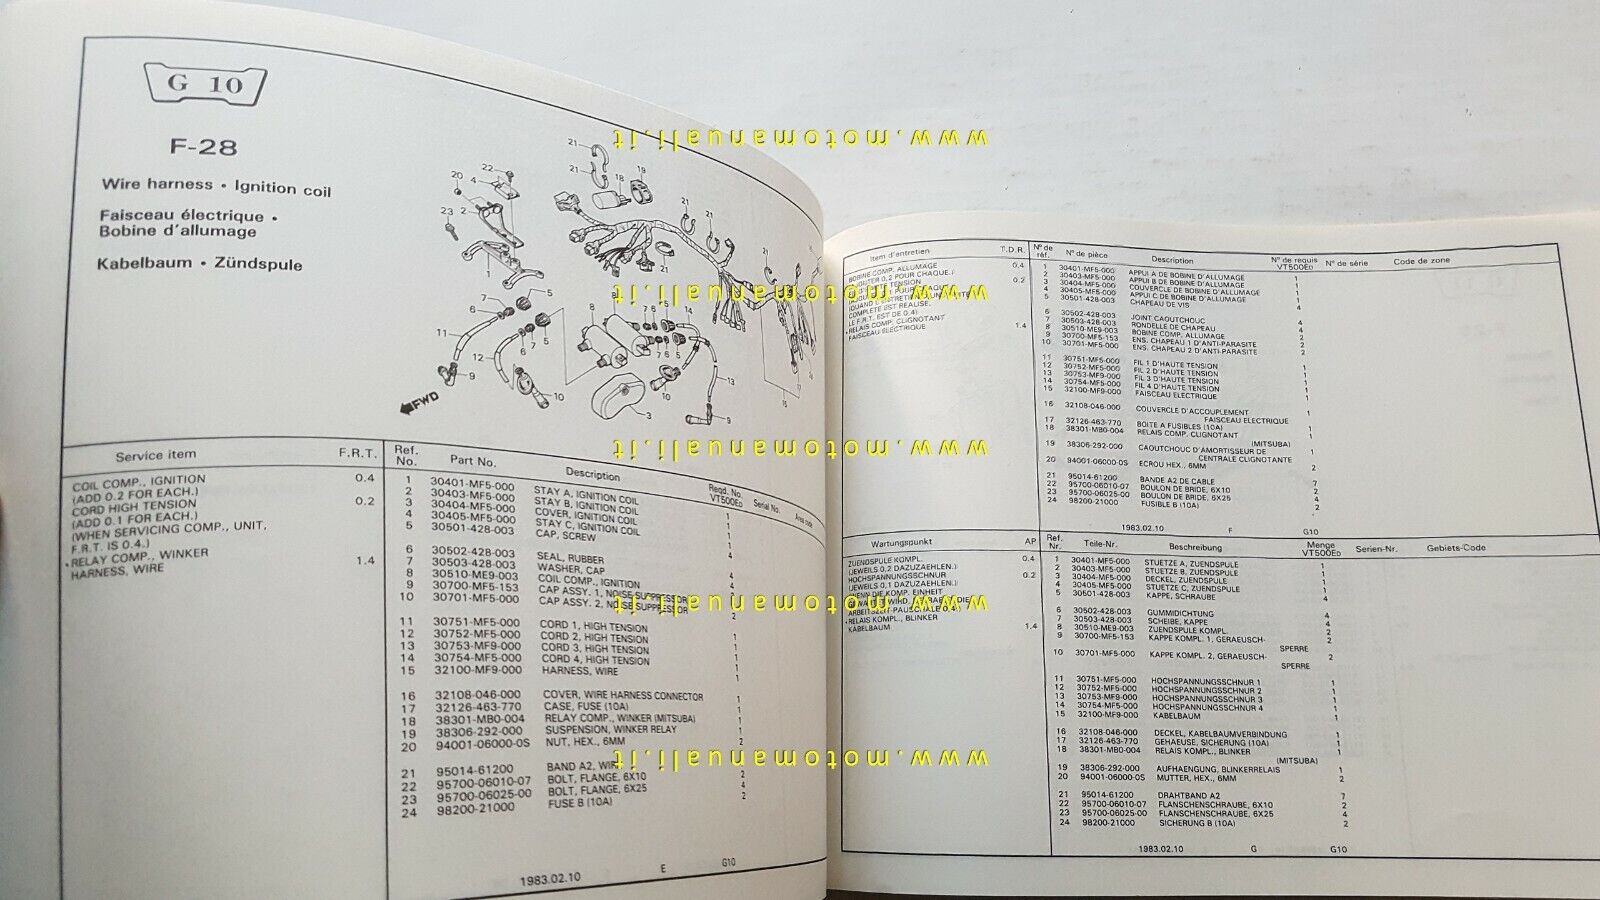 G 10
F-28
Wire harness • Ignition coil
Faisceau électrique •
Bobine d'allumage
Kabelbaum • Zündspule
FWD
www.motomanuali.it
www.motomanuali.it
www.motomanuali.it
www.motomanuali.it
www.motomanuali.it
Service item F.R.T.
COIL COMP., IGNITION 0.4
(ADD 0.2 FOR EACH.)
CORD HIGH TENSION 0.2
(ADD 0.1 FOR EACH.)
(WHEN SERVICING COMP., UNIT,
F.R.T. IS 0.4.)
•RELAY COMP., WINKER
HARNESS, WIRE 1.4
Ref. No. Part No. Description Reqd. No. VT500ED Serial No. Area code
1 30401-MF5-000 STAY A, IGNITION COIL 1
2 30403-MF5-000 STAY B, IGNITION COIL 1
3 30404-MF5-000 COVER, IGNITION COIL 1
4 30405-MF5-000 STAY C, IGNITION COIL 1
5 30501-428-003 CAP, SCREW 4
6 30502-428-003 SEAL, RUBBER 4
7 30503-428-003 WASHER, CAP 4
8 30510-ME9-003 COIL COMP., IGNITION 2
9 30700-MF5-153 CAP ASSY. 1, NOISE SUPPRESSOR 2
10 30701-MF5-000 CAP ASSY. 2, NOISE SUPPRESSOR 2
11 30751-MF5-000 CORD 1, HIGH TENSION 1
12 30752-MF5-000 CORD 2, HIGH TENSION 1
13 30753-MF9-000 CORD 3, HIGH TENSION 1
14 30754-MF5-000 CORD 4, HIGH TENSION 1
15 32100-MF9-000 HARNESS, WIRE 1
16 32108-046-000 COVER, WIRE HARNESS CONNECTOR 1
17 32126-463-770 CASE, FUSE (10A) 1
18 38301-MB0-004 RELAY COMP., WINKER (MITSUBA) 1
19 38306-292-000 SUSPENSION, WINKER RELAY 1
20 94001-06000-0S NUT, HEX., 6MM 2
21 95014-61200 BAND A2, WIRE
22 95700-06010-07 BOLT, FLANGE, 6X10 2
23 95700-06025-00 BOLT, FLANGE, 6X25 4
24 98200-21000 FUSE B (10A) 2
1983.02.10 E G10
Item d'entretien T.D.R.
BOBINE COMP. ALLUMAGE 0.4
(AJOUTER 0.2 POUR CHAQUE.)
0.2
COMPLETE EST REALISE.
LE F.R.T. EST DE 0.4)
•RELAIS COMP. CLIGNOTANT
FAISCEAU ELECTRIQUE 1.4
N° de réf. N° de pièce Description N° de requis VT500ED N° de série Code de zone
1 30401-MF5-000 APPUI A DE BOBINE D'ALLUMAGE 1
2 30403-MF5-000 APPUI B DE BOBINE D'ALLUMAGE 1
3 30404-MF5-000 COUVERCLE DE BOBINE D'ALLUMAGE 1
4 30405-MF5-000 APPUI C DE BOBINE D'ALLUMAGE 1
5 30501-428-003 CHAPEAU DE VIS 4
6 30502-428-003 JOINT CAOUTCHOUC 4
7 30503-428-003 RONDELLE DE CHAPEAU 4
8 30510-ME9-003 BOBINE COMP. ALLUMAGE 2
9 30700-MF5-153 ENS. CHAPEAU 1 D'ANTI-PARASITE 2
10 30701-MF5-000 ENS. CHAPEAU 2 D'ANTI-PARASITE 2
11 30751-MF5-000 FIL 1 D'HAUTE TENSION 1
12 30752-MF5-000 FIL 2 D'HAUTE TENSION 1
13 30753-MF9-000 FIL 3 D'HAUTE TENSION 1
14 30754-MF5-000 FIL 4 D'HAUTE TENSION 1
15 32100-MF9-000 FAISCEAU ELECTRIQUE 1
16 32108-046-000 COUVERCLE D'ACCOUPLEMENT 1
FAISCEAU ELECTRIQUE
17 32126-463-770 BOITE A FUSIBLES (10A) 1
18 38301-MB0-004 RELAIS COMP. CLIGNOTANT 1
(MITSUBA)
19 38306-292-000 CAOUTCHOUC D'AMORTISSEUR DE 1
CENTRALE CLIGNOTANTE
20 94001-06000-0S ECROU HEX., 6MM 2
21 95014-61200 BANDE A2 DE CABLE 7
22 95700-06010-07 BOULON DE BRIDE, 6X10 2
23 95700-06025-00 BOULON DE BRIDE, 6X25 4
24 98200-21000 FUSIBLE B (10A) 2
1983.02.10 F G10
Wartungspunkt AP
ZUENDSPULE KOMPL. 0.4
(JEWEILS 0.2 DAZUZAEHLEN.)
HOCHSPANNUNGSSCHNUR 0.2
(JEWEILS 0.1 DAZUZAEHLEN.)
(WENN DIE KOMP. EINHEIT
ARBEITSZEIT-PAUSCHALE 0.4.)
•RELAIS KOMPL., BLINKER
KABELBAUM 1.4
Ref. Nr. Teile-Nr. Beschreibung Menge VT500ED Serien-Nr. Gebiets-Code
1 30401-MF5-000 STUETZE A, ZUENDSPULE 1
2 30403-MF5-000 STUETZE B, ZUENDSPULE 1
3 30404-MF5-000 DECKEL, ZUENDSPULE 1
4 30405-MF5-000 STUETZE C, ZUENDSPULE 1
5 30501-428-003 KAPPE, SCHRAUBE 4
6 30502-428-003 GUMMIDICHTUNG 4
7 30503-428-003 SCHEIBE, KAPPE 4
8 30510-ME9-003 ZUENDSPULE KOMPL. 2
9 30700-MF5-153 KAPPE KOMPL. 1, GERAEUSCH- 2
SPERRE
10 30701-MF5-000 KAPPE KOMPL. 2, GERAEUSCH- 2
SPERRE
11 30751-MF5-000 HOCHSPANNUNGSSCHNUR 1 1
12 30752-MF5-000 HOCHSPANNUNGSSCHNUR 2 1
13 30753-MF9-000 HOCHSPANNUNGSSCHNUR 3 1
14 30754-MF5-000 HOCHSPANNUNGSSCHNUR 4 1
15 32100-MF9-000 KABELBAUM 1
16 32108-046-000 DECKEL, KABELBAUMVERBINDUNG 1
17 32126-463-770 GEHAEUSE, SICHERUNG (10A) 1
18 38301-MB0-004 RELAIS KOMPL., BLINKER 1
(MITSUBA)
19 38306-292-000 AUFHAENGUNG, BLINKERRELAIS 1
20 94001-06000-0S MUTTER, HEX., 6MM 2
21 95014-61200 DRAHTBAND A2 7
22 95700-06010-07 FLANSCHENSCHRAUBE, 6X10 2
23 95700-06025-00 FLANSCHENSCHRAUBE, 6X25 4
24 98200-21000 SICHERUNG B (10A) 2
1983.02.10 G G10